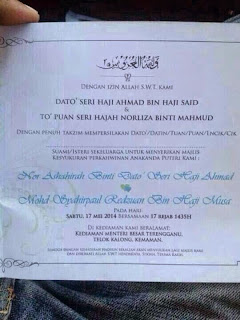 DENGAN IZIN ALLAH S.W.T. KAMI
DATO' SERI HAJI AHMAD BIN HAJI SAID
&
TO' PUAN SERI HAJAH NORLIZA BINTI MAHMUD
DENGAN PENUH TAKZIM MEMPERSILAKAN DATO/DATIN/TUAN/PUAN/ENCIK/CIK
SUAMI/ISTERI SEKELUARGA UNTUK MENYERIKAN MAJLIS
KESYUKURAN PERKAHWINAN ANAKANDA PUTERI KAMI :
Nor Ashahirah Binti Dato' Seri Haji Ahmad
&
Mohd Syahirpaul Redzuan Bin Haji Musa
PADA HARI
SABTU, 17 MEI 2014 BERSAMAAN 17 REJAB 1435H
DI KEDIAMAN KAMI BERALAMAT:
KEDIAMAN MENTERI BESAR TERENGGANU,
TELOK KALONG, KEMAMAN.